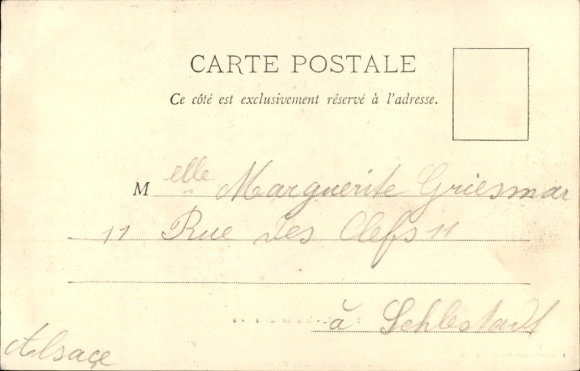 CARTE POSTALE
Ce côté est exclusivement réservé à l'adresse.
Melle Marguerite Griesmar
11 Rue des Clefs 11
à Schlestadt
Alsace